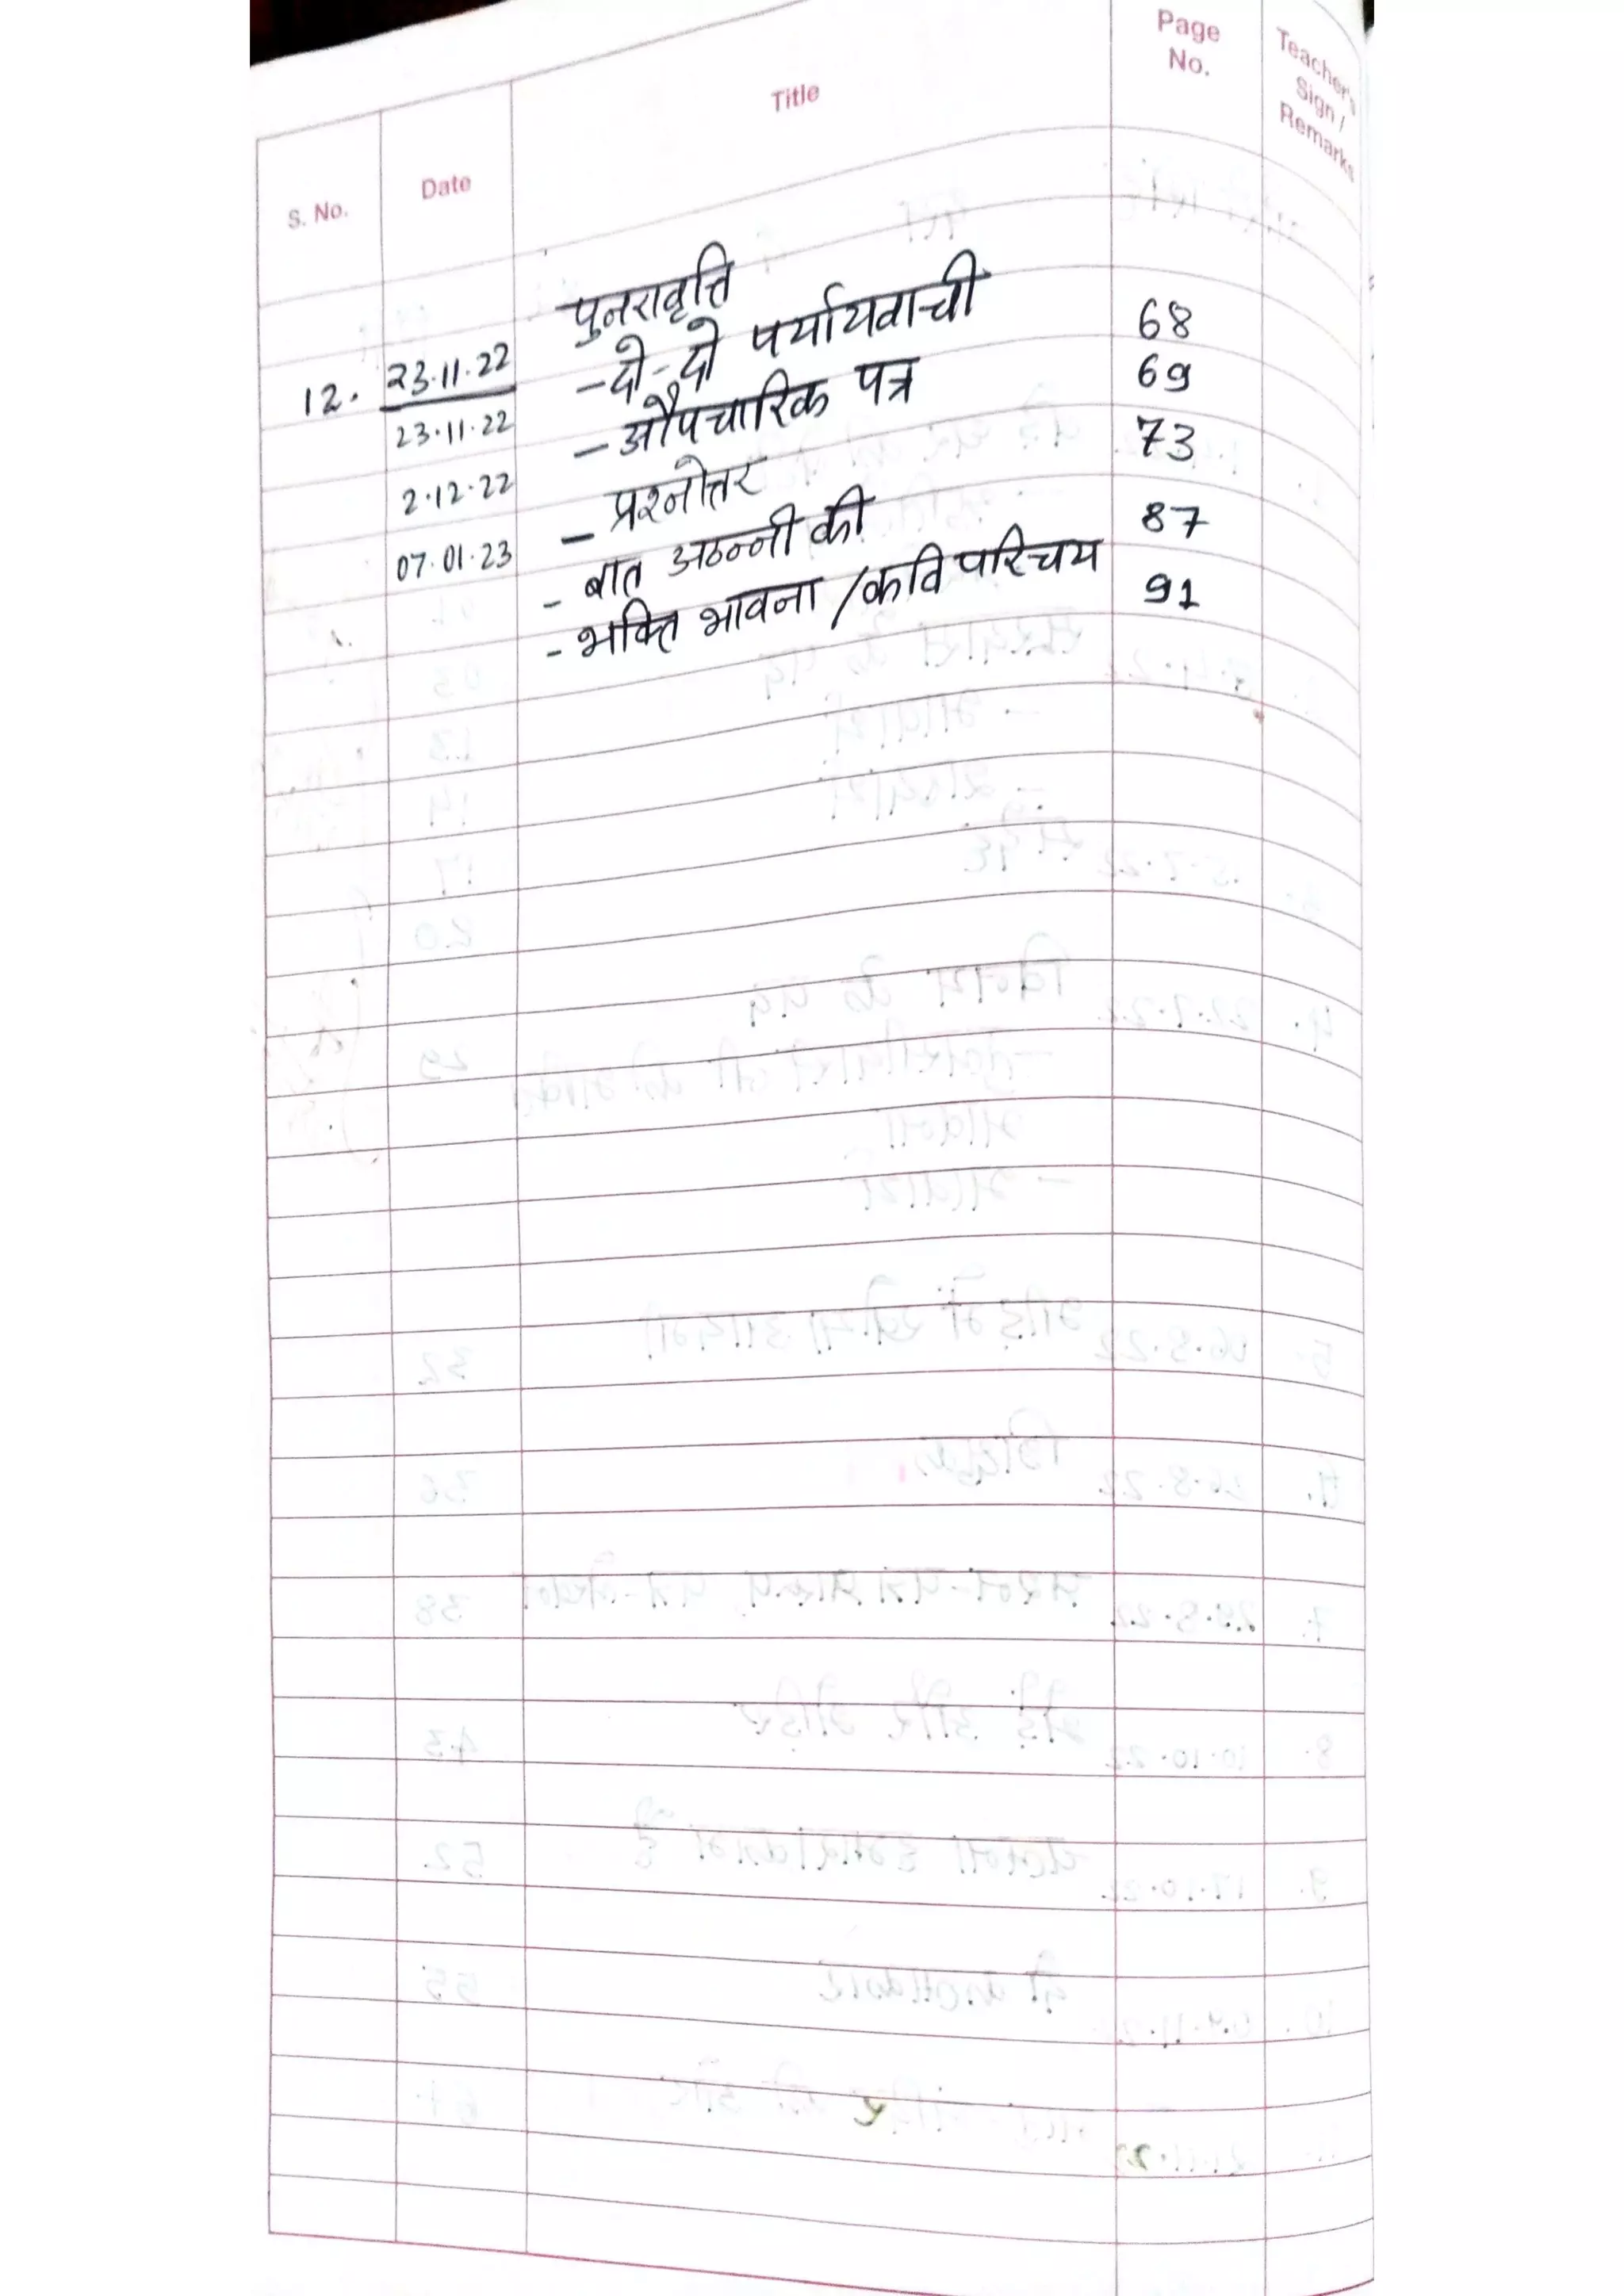 S. No. Date Title Page No. Teacher's Sign / Remarks
पुनरावृत्ति
12. 23.11.22 - दो-दो पर्यायवाची 68
23.11.22 - औपचारिक पत्र 69
2.12.22 - प्रश्नोत्तर 73
07.01.23 - बात अठन्नी की 87
- भक्ति भावना / कवि परिचय 91